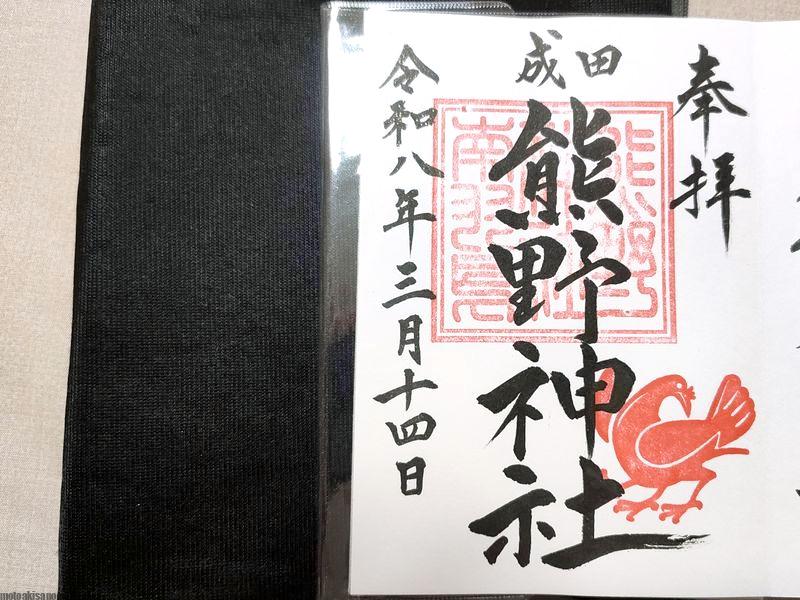 奉拝
成田
熊野神社
令和八年三月十四日